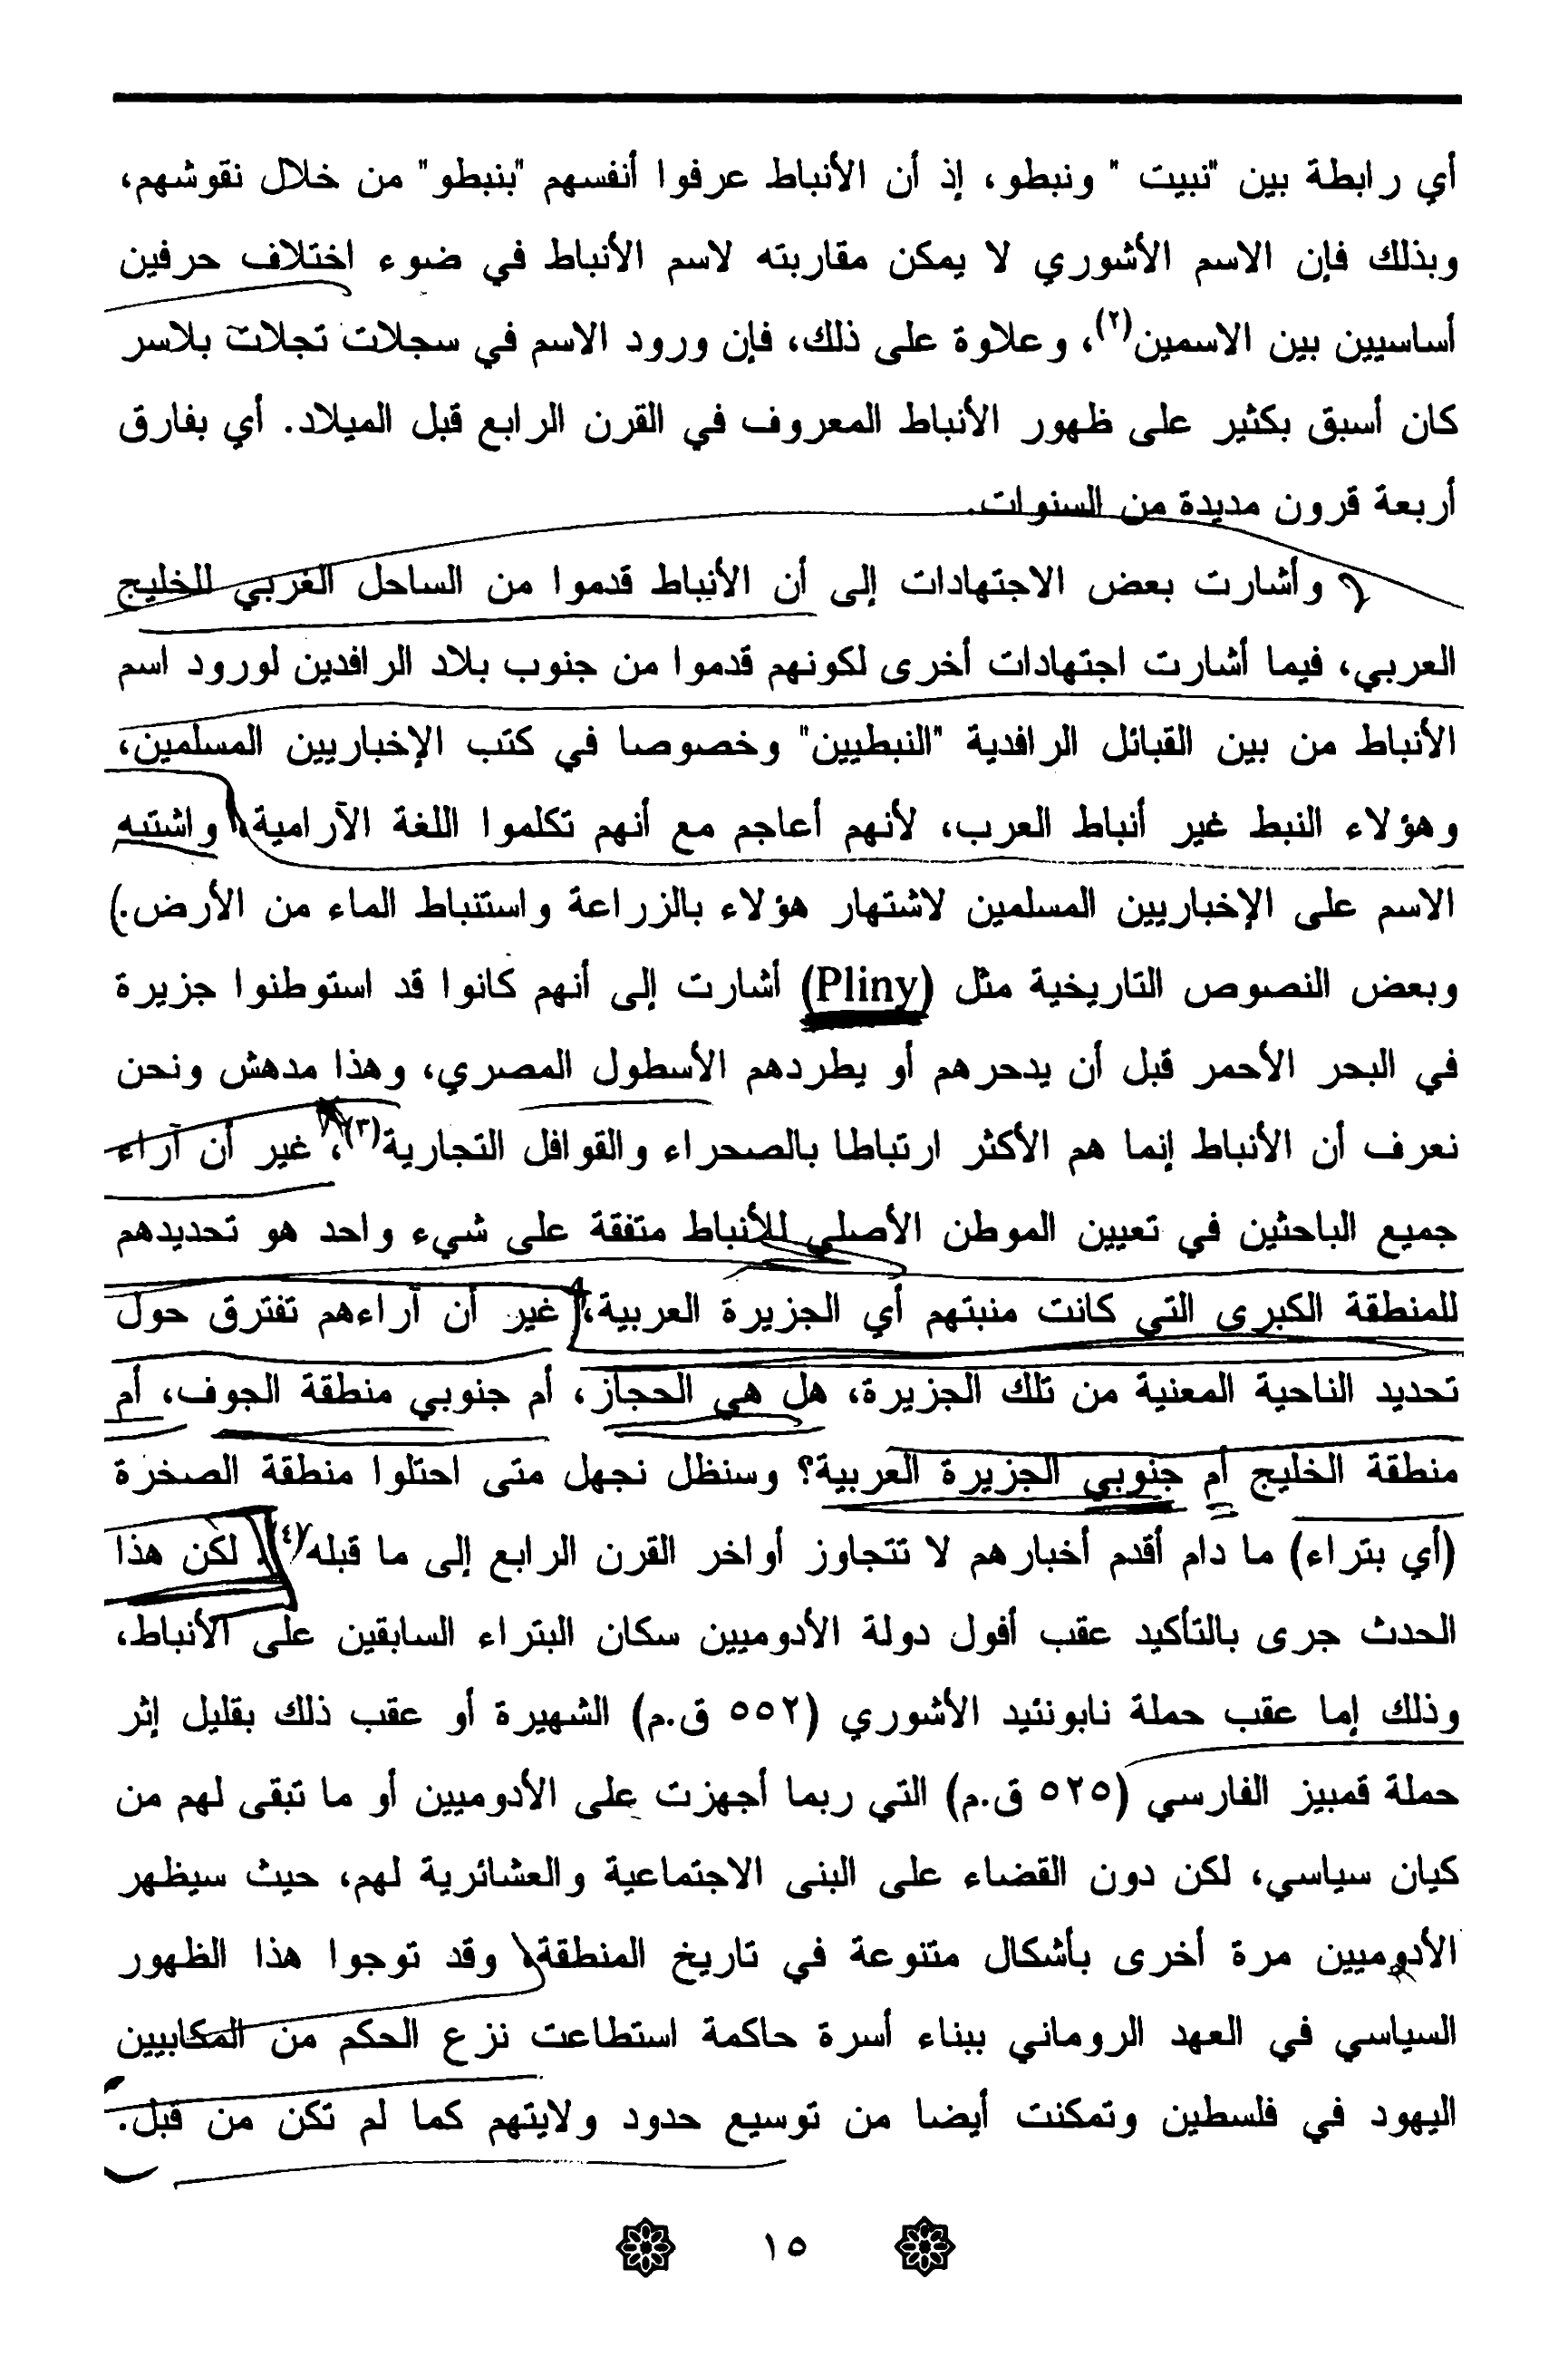 أي رابطة بين "نبيت " ونبطو، إذ أن الأنباط عرفوا أنفسهم "بنبطو" من خلال نقوشهم،
وبذلك فإن الاسم الأشوري لا يمكن مقاربته لاسم الأنباط في ضوء اختلاف حرفين
أساسيين بين الاسمين(٢)، وعلاوة على ذلك، فإن ورود الاسم في سجلات تجلات بلاسر
كان أسبق بكثير على ظهور الأنباط المعروف في القرن الرابع قبل الميلاد. أي بفارق
أربعة قرون مديدة من السنوات.
وأشارت بعض الاجتهادات إلى أن الأنباط قدموا من الساحل الغربي للخليج
العربي، فيما أشارت اجتهادات أخرى لكونهم قدموا من جنوب بلاد الرافدين لورود اسم
الأنباط من بين القبائل الرافدية "النبطيين" وخصوصا في كتب الإخباريين المسلمين،
وهؤلاء النبط غير أنباط العرب، لأنهم أعاجم مع أنهم تكلموا اللغة الآرامية، واشتبه
الاسم على الإخباريين المسلمين لاشتهار هؤلاء بالزراعة واستنباط الماء من الأرض.
وبعض النصوص التاريخية مثل (Pliny) أشارت إلى أنهم كانوا قد استوطنوا جزيرة
في البحر الأحمر قبل أن يدحرهم أو يطردهم الأسطول المصري، وهذا مدهش ونحن
نعرف أن الأنباط إنما هم الأكثر ارتباطا بالصحراء والقوافل التجارية(٣)، غير أن آراء
جميع الباحثين في تعيين الموطن الأصلي للأنباط متفقة على شيء واحد هو تحديدهم
للمنطقة الكبرى التي كانت منبتهم أي الجزيرة العربية، غير أن آراءهم تفترق حول
تحديد الناحية المعنية من تلك الجزيرة، هل هي الحجاز، أم جنوبي منطقة الجوف، أم
منطقة الخليج أم جنوبي الجزيرة العربية؟ وسنظل نجهل متى احتلوا منطقة الصخرة
(أي بتراء) ما دام أقدم أخبارهم لا تتجاوز أواخر القرن الرابع إلى ما قبله(٤). لكن هذا
الحدث جرى بالتأكيد عقب أفول دولة الأدوميين سكان البتراء السابقين على الأنباط،
وذلك إما عقب حملة نابونئيد الأشوري (٥٥٢ ق.م) الشهيرة أو عقب ذلك بقليل إثر
حملة قمبيز الفارسي (٥٢٥ ق.م) التي ربما أجهزت على الأدوميين أو ما تبقى لهم من
كيان سياسي، لكن دون القضاء على البنى الاجتماعية والعشائرية لهم، حيث سيظهر
الأدوميين مرة أخرى بأشكال متنوعة في تاريخ المنطقة، وقد توجوا هذا الظهور
السياسي في العهد الروماني ببناء أسرة حاكمة استطاعت نزع الحكم من المكابيين
اليهود في فلسطين وتمكنت أيضا من توسيع حدود ولايتهم كما لم تكن من قبل.
١٥